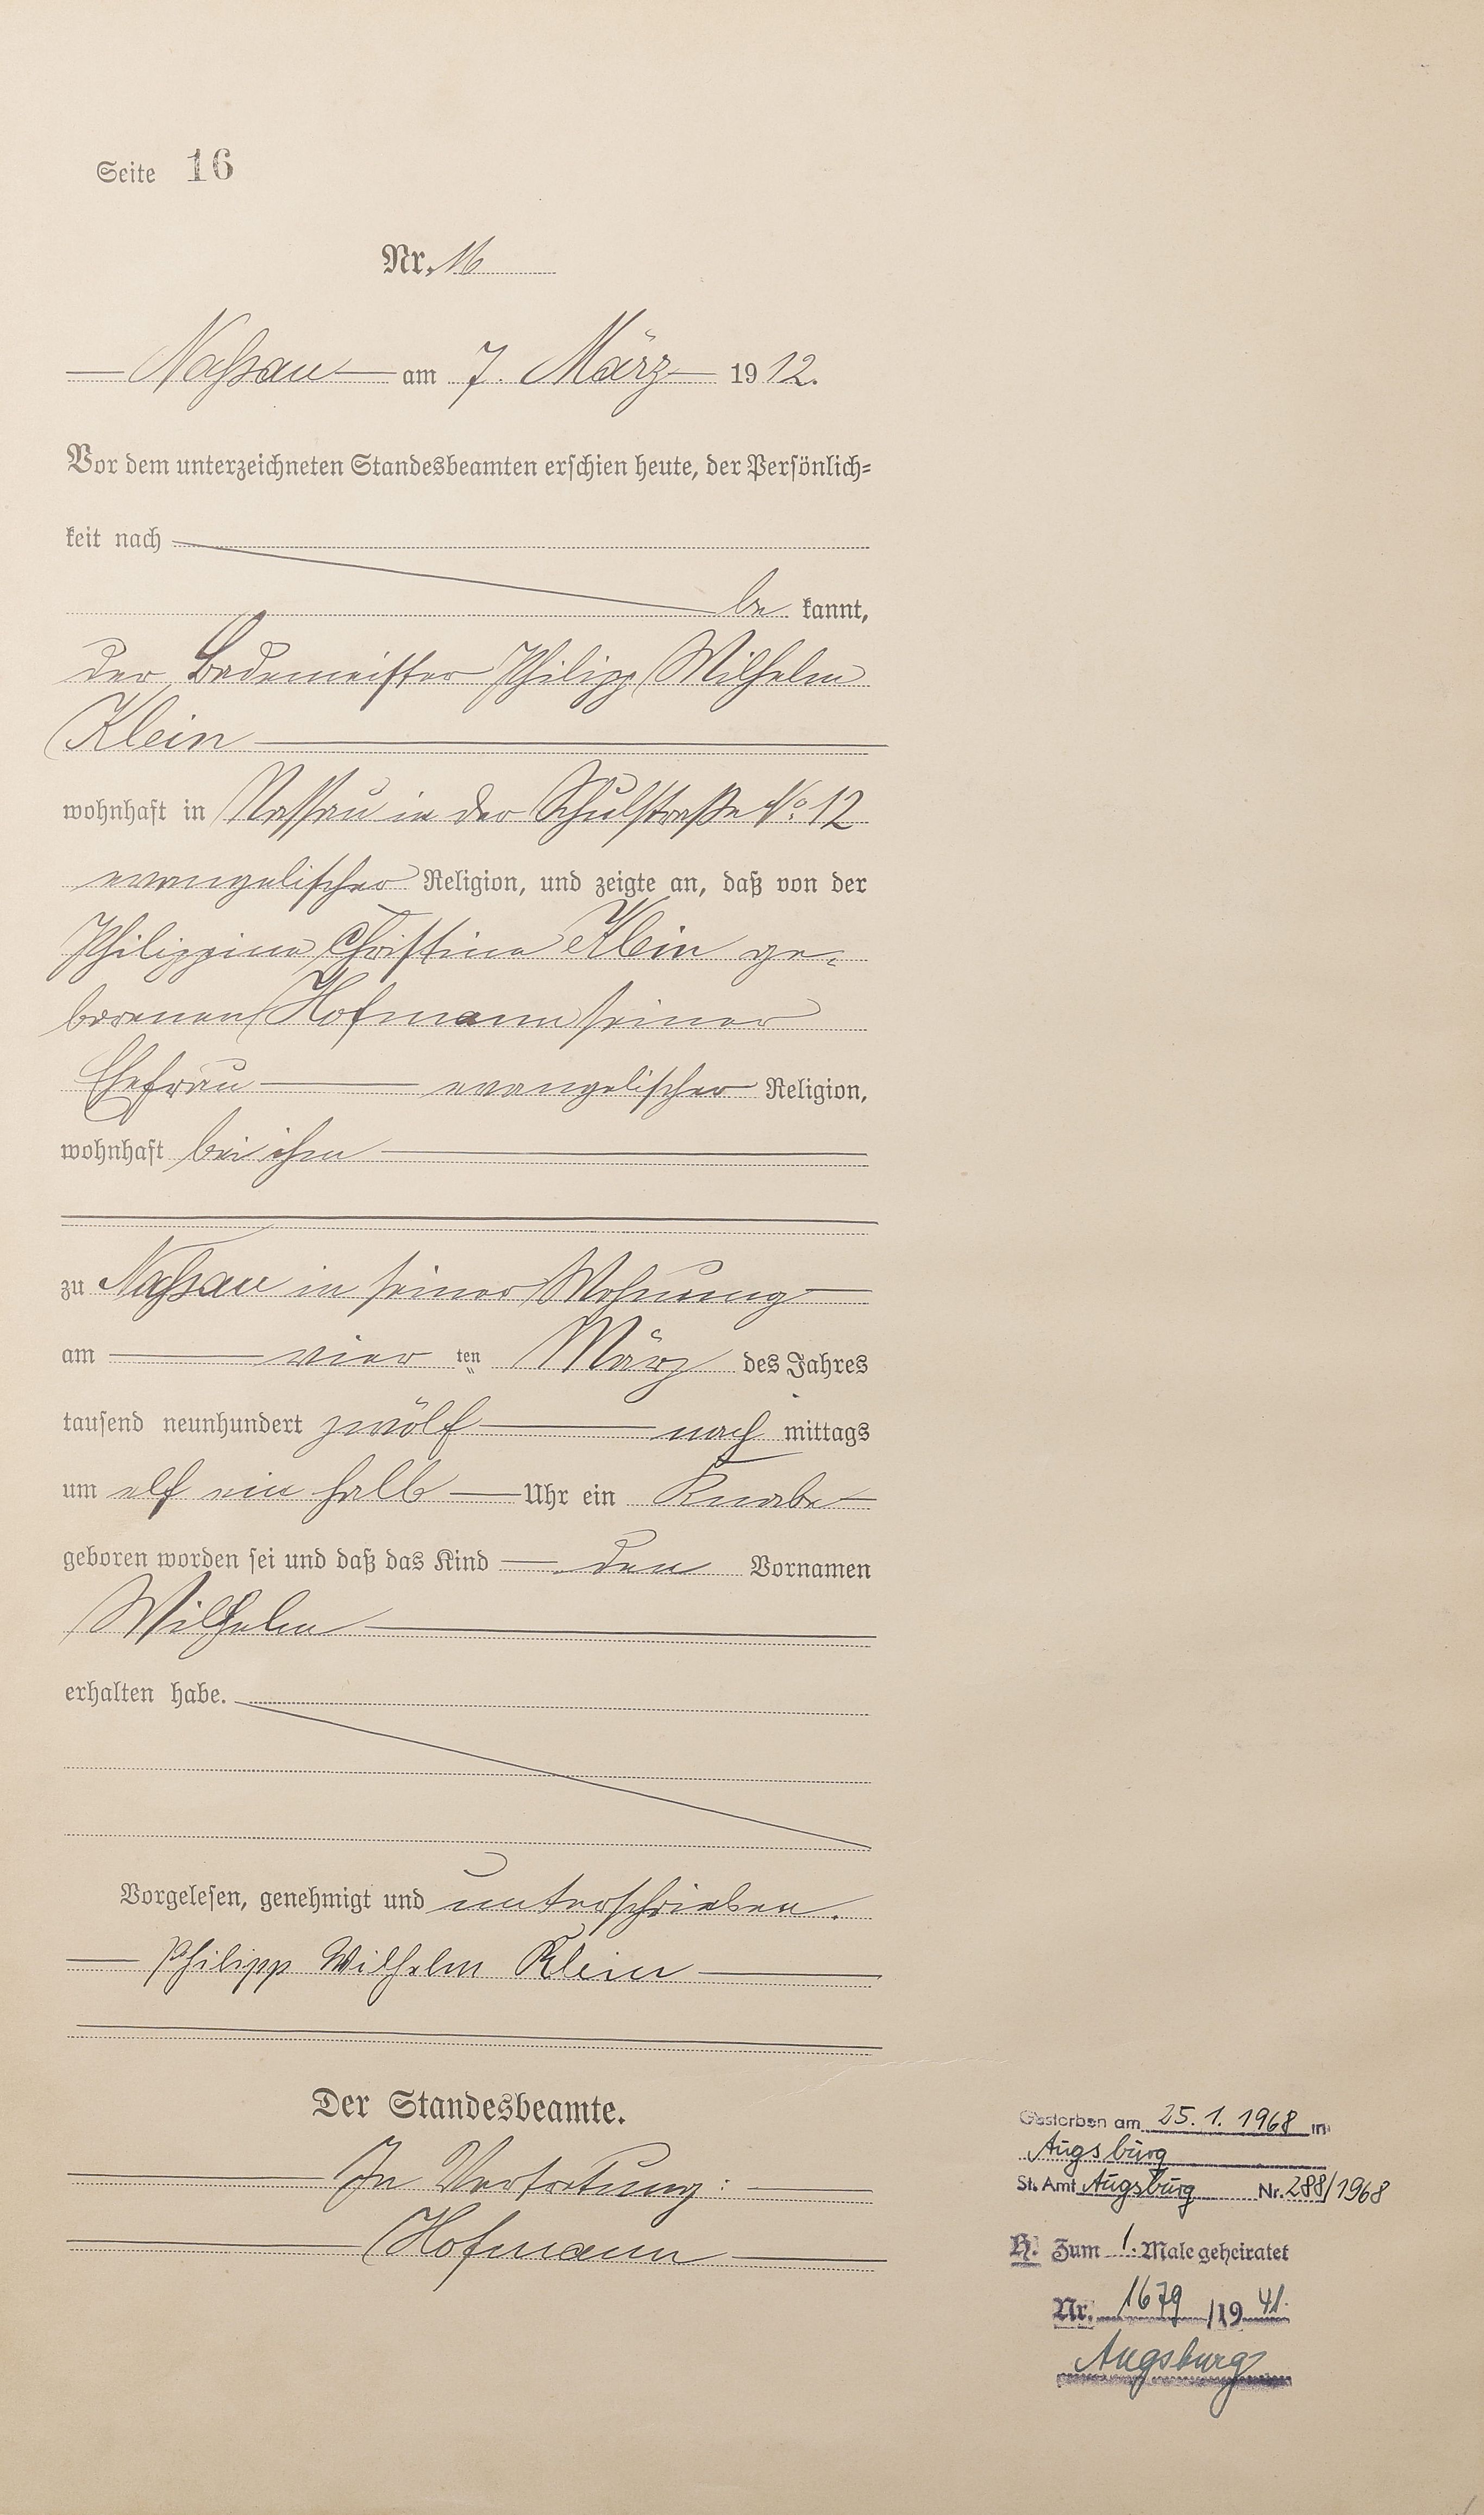 Seite 16
Nr. 16
Nassau am 7. März 1912.
Vor dem unterzeichneten Standesbeamten erschien heute, der Persönlich=
keit nach
be kannt,
der Bademeister Philipp Wilhelm
Klein
wohnhaft in Nassau in der Schulstraße No. 12
evangelischer Religion, und zeigte an, daß von der
Philippine Christine Klein ge-
borenen Hofmann seiner
Ehefrau evangelischer Religion,
wohnhaft bei ihm
zu Nassau in seiner Wohnung
am vier ten März des Jahres
tausend neunhundert zwölf nach mittags
um elf ein halb Uhr ein Knabe
geboren worden sei und daß das Kind den Vornamen
Wilhelm
erhalten habe.
Vorgelesen, genehmigt und unterschrieben.
Philipp Wilhelm Klein
Der Standesbeamte.
In Vertretung:
Hofmann
Gestorben am 25. 1. 1968 in
Augsburg
St. Amt Augsburg Nr. 288/1968
H. Zum 1. Male geheiratet
Nr. 1679 /19 41.
Augsburg